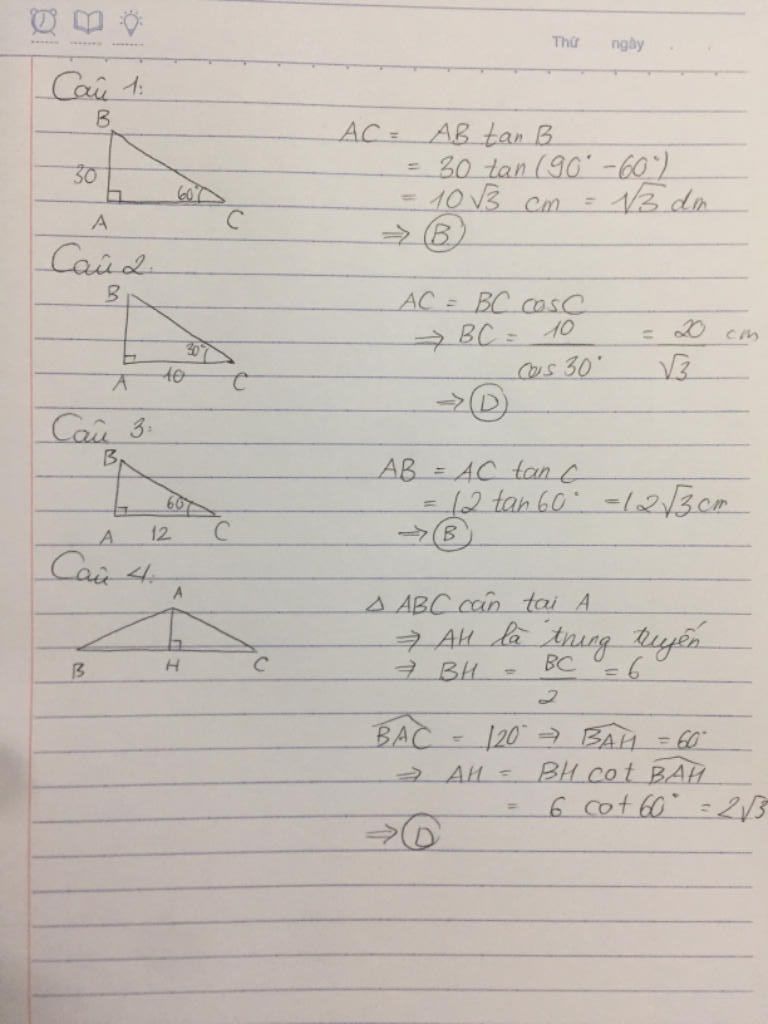 Thứ ngày
Câu 1:
B
30
60°
A
C
AC = AB tan B
= 30 tan (90° - 60°)
= 10√3 cm = √3 dm
⇒ B
Câu 2:
B
30°
A
10
C
AC = BC cos C
⇒ BC = 10/cos 30° = 20/√3 cm
⇒ D
Câu 3:
B
60
A
12
C
AB = AC tan C
= 12 tan 60° = 12√3 cm
⇒ B
Câu 4:
A
B
H
C
△ ABC cân tại A
⇒ AH là trung tuyến
⇒ BH = BC/2 = 6
BAC = 120° ⇒ BAH = 60°
⇒ AH = BH cot BAH
= 6 cot 60° = 2√3
⇒ D